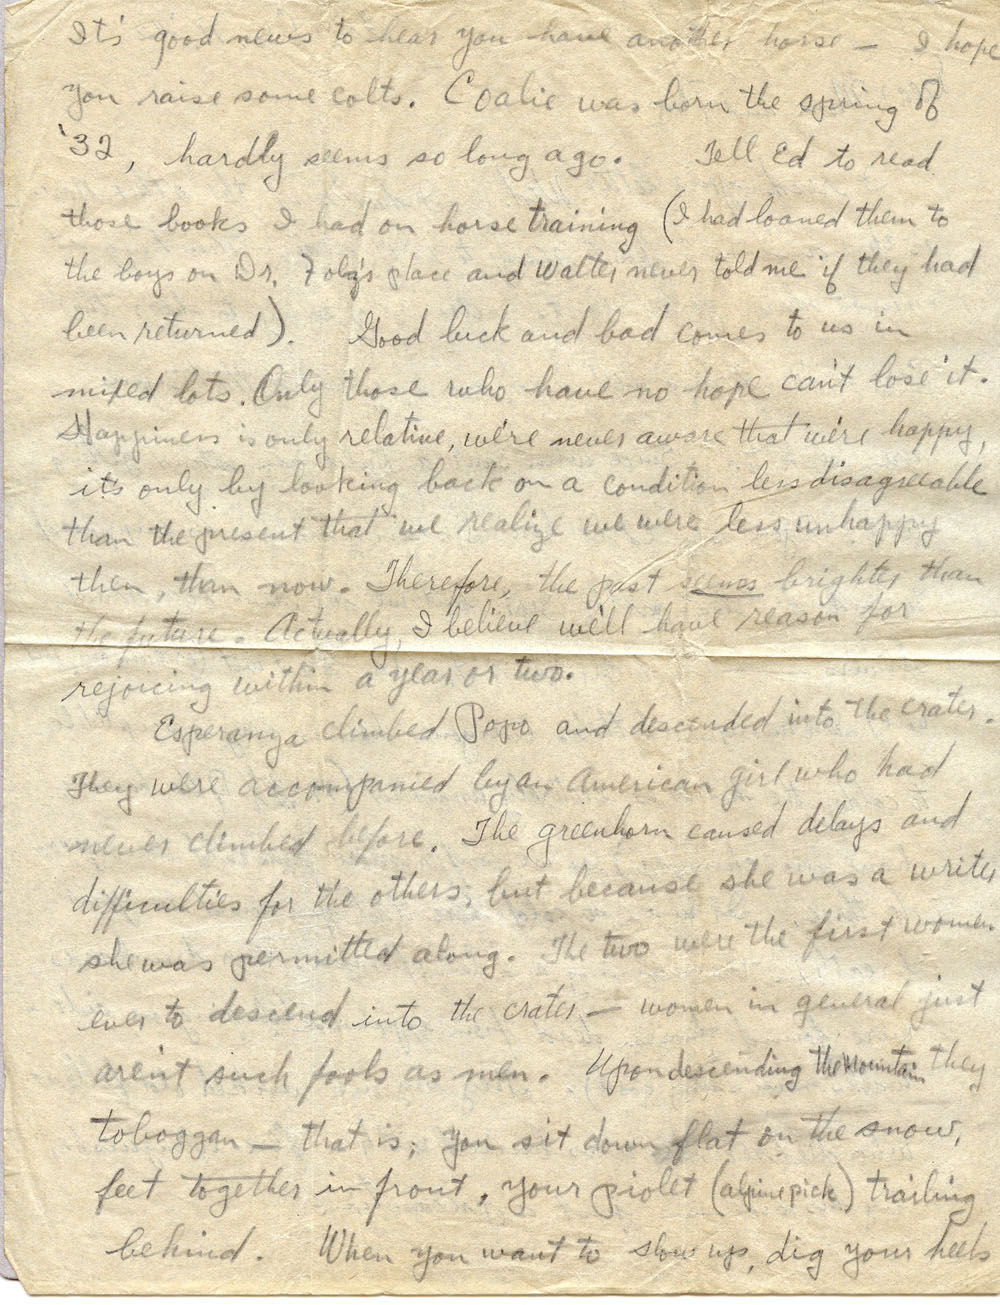 It's good news to hear you have another horse — I hope
you raise some colts. Coalie was born the spring of
'32, hardly seems so long ago. Tell Ed to read
those books I had on horse training (I had loaned them to
the boys on Dr. place and Walter never told me if they had
been returned). Good luck and bad comes to us in
mixed lots. Only those who have no hope can't lose it.
Happiness is only relative, we're never aware that we're happy,
it's only by looking back on a condition less disagreeable
than the present that we realize we were less unhappy
then, than now. Therefore, the past seems brighter than
the future. Actually, I believe we'll have reason for
rejoicing within a year or two.
Esperanza climbed Popo and descended into the crater.
They were accompanied by an American girl who had
never climbed before. The greenhorn caused delays and
difficulties for the others, but because she was a writer
she was permitted along. The two were the first women
ever to descend into the crater — women in general just
aren't such fools as men. Upon descending the mountain they
toboggan — that is; you sit down flat on the snow,
feet together in front, your piolet (alpine pick) trailing
behind. When you want to slow up, dig your heels